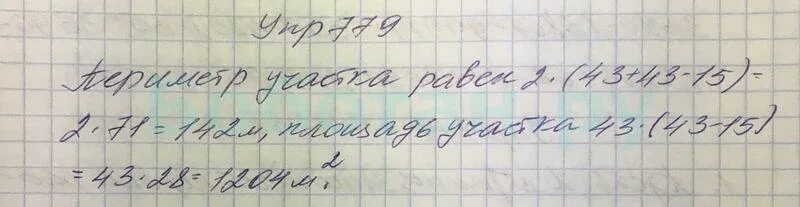 Упр 779
Периметр участка равен 2·(43+43-15)=
2·71=142м, площадь участка 43·(43-15)
=43·28=1204м².